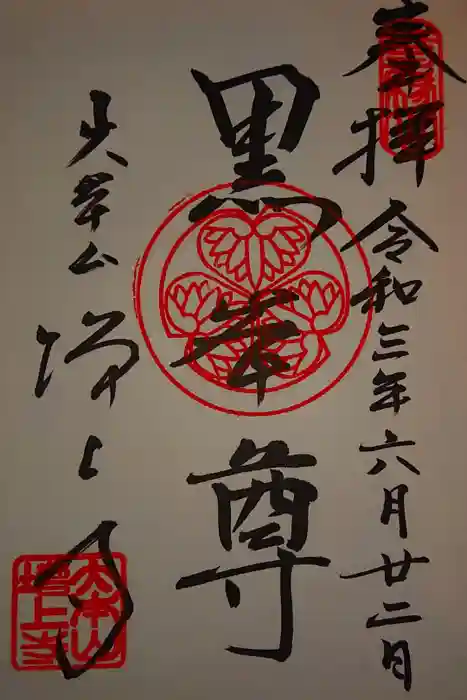 奉拝 令和三年六月廿二日
黒本尊
大本山 増上寺
大本山
増上寺